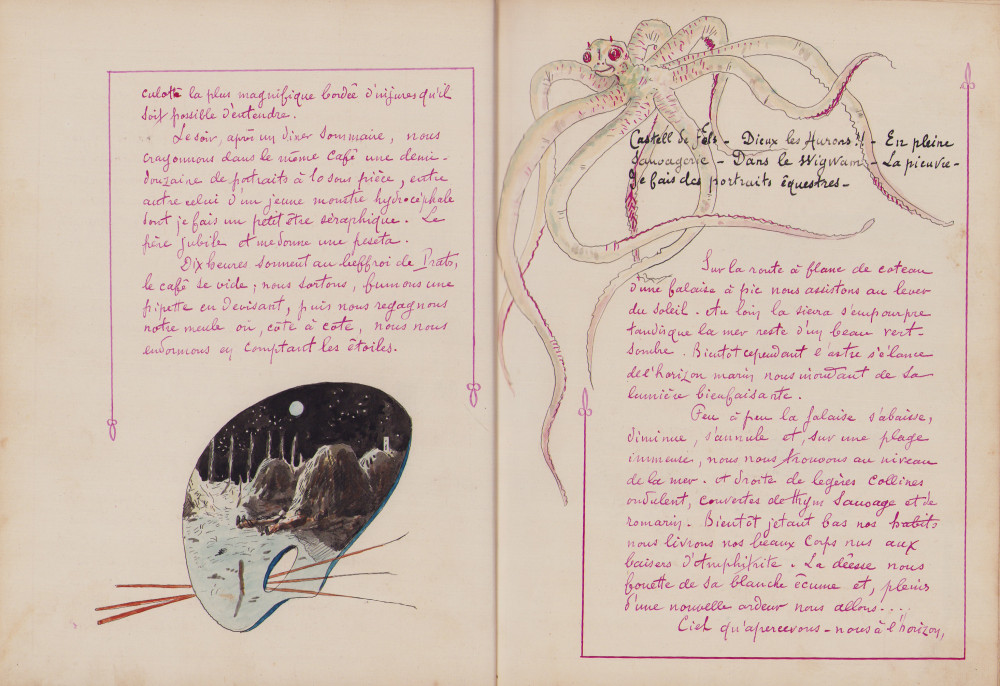 culotté la plus magnifique bordée d'injures qu'il
soit possible d'entendre.
Le soir, après un dîner sommaire, nous
crayonnons dans le même café une demi-
douzaine de portraits à 10 sous pièce, entre
autre celui d'un jeune monstre hydrocéphale
dont je fais un petit être séraphique. Le
père jubile et me donne une peseta.
Dix heures sonnent au beffroi de Prats,
le café se vide ; nous sortons, fumons une
pipette en devisant, puis nous regagnons
notre meule où, côte à côte, nous nous
endormons en comptant les étoiles.
Castell de Fels - Dieux les Hurons !! - En pleine
Sauvagerie - Dans le Wigwam - La pieuvre -
Je fais des portraits équestres -
Sur la route à flanc de coteau
d'une falaise à pic nous assistons au lever
du soleil. Au loin la sierra s'empourpre
tandisque la mer reste d'un beau vert-
sombre. Bientôt cependant l'astre s'élance
de l'horizon marin nous inondant de sa
lumière bienfaisante.
Peu à peu la falaise s'abaisse,
diminue, s'annule et, sur une plage
immense, nous nous trouvons au niveau
de la mer. A droite de legères collines
ondulent, couvertes de thym sauvage et de
romarin. Bientôt jetant bas nos habits
nous livrons nos beaux corps nus aux
baisers d'Amphitrite. La déesse nous
fouette de sa blanche écume et, pleins
d'une nouvelle ardeur nous allons....
Ciel qu'apercevons-nous à l'horizon,